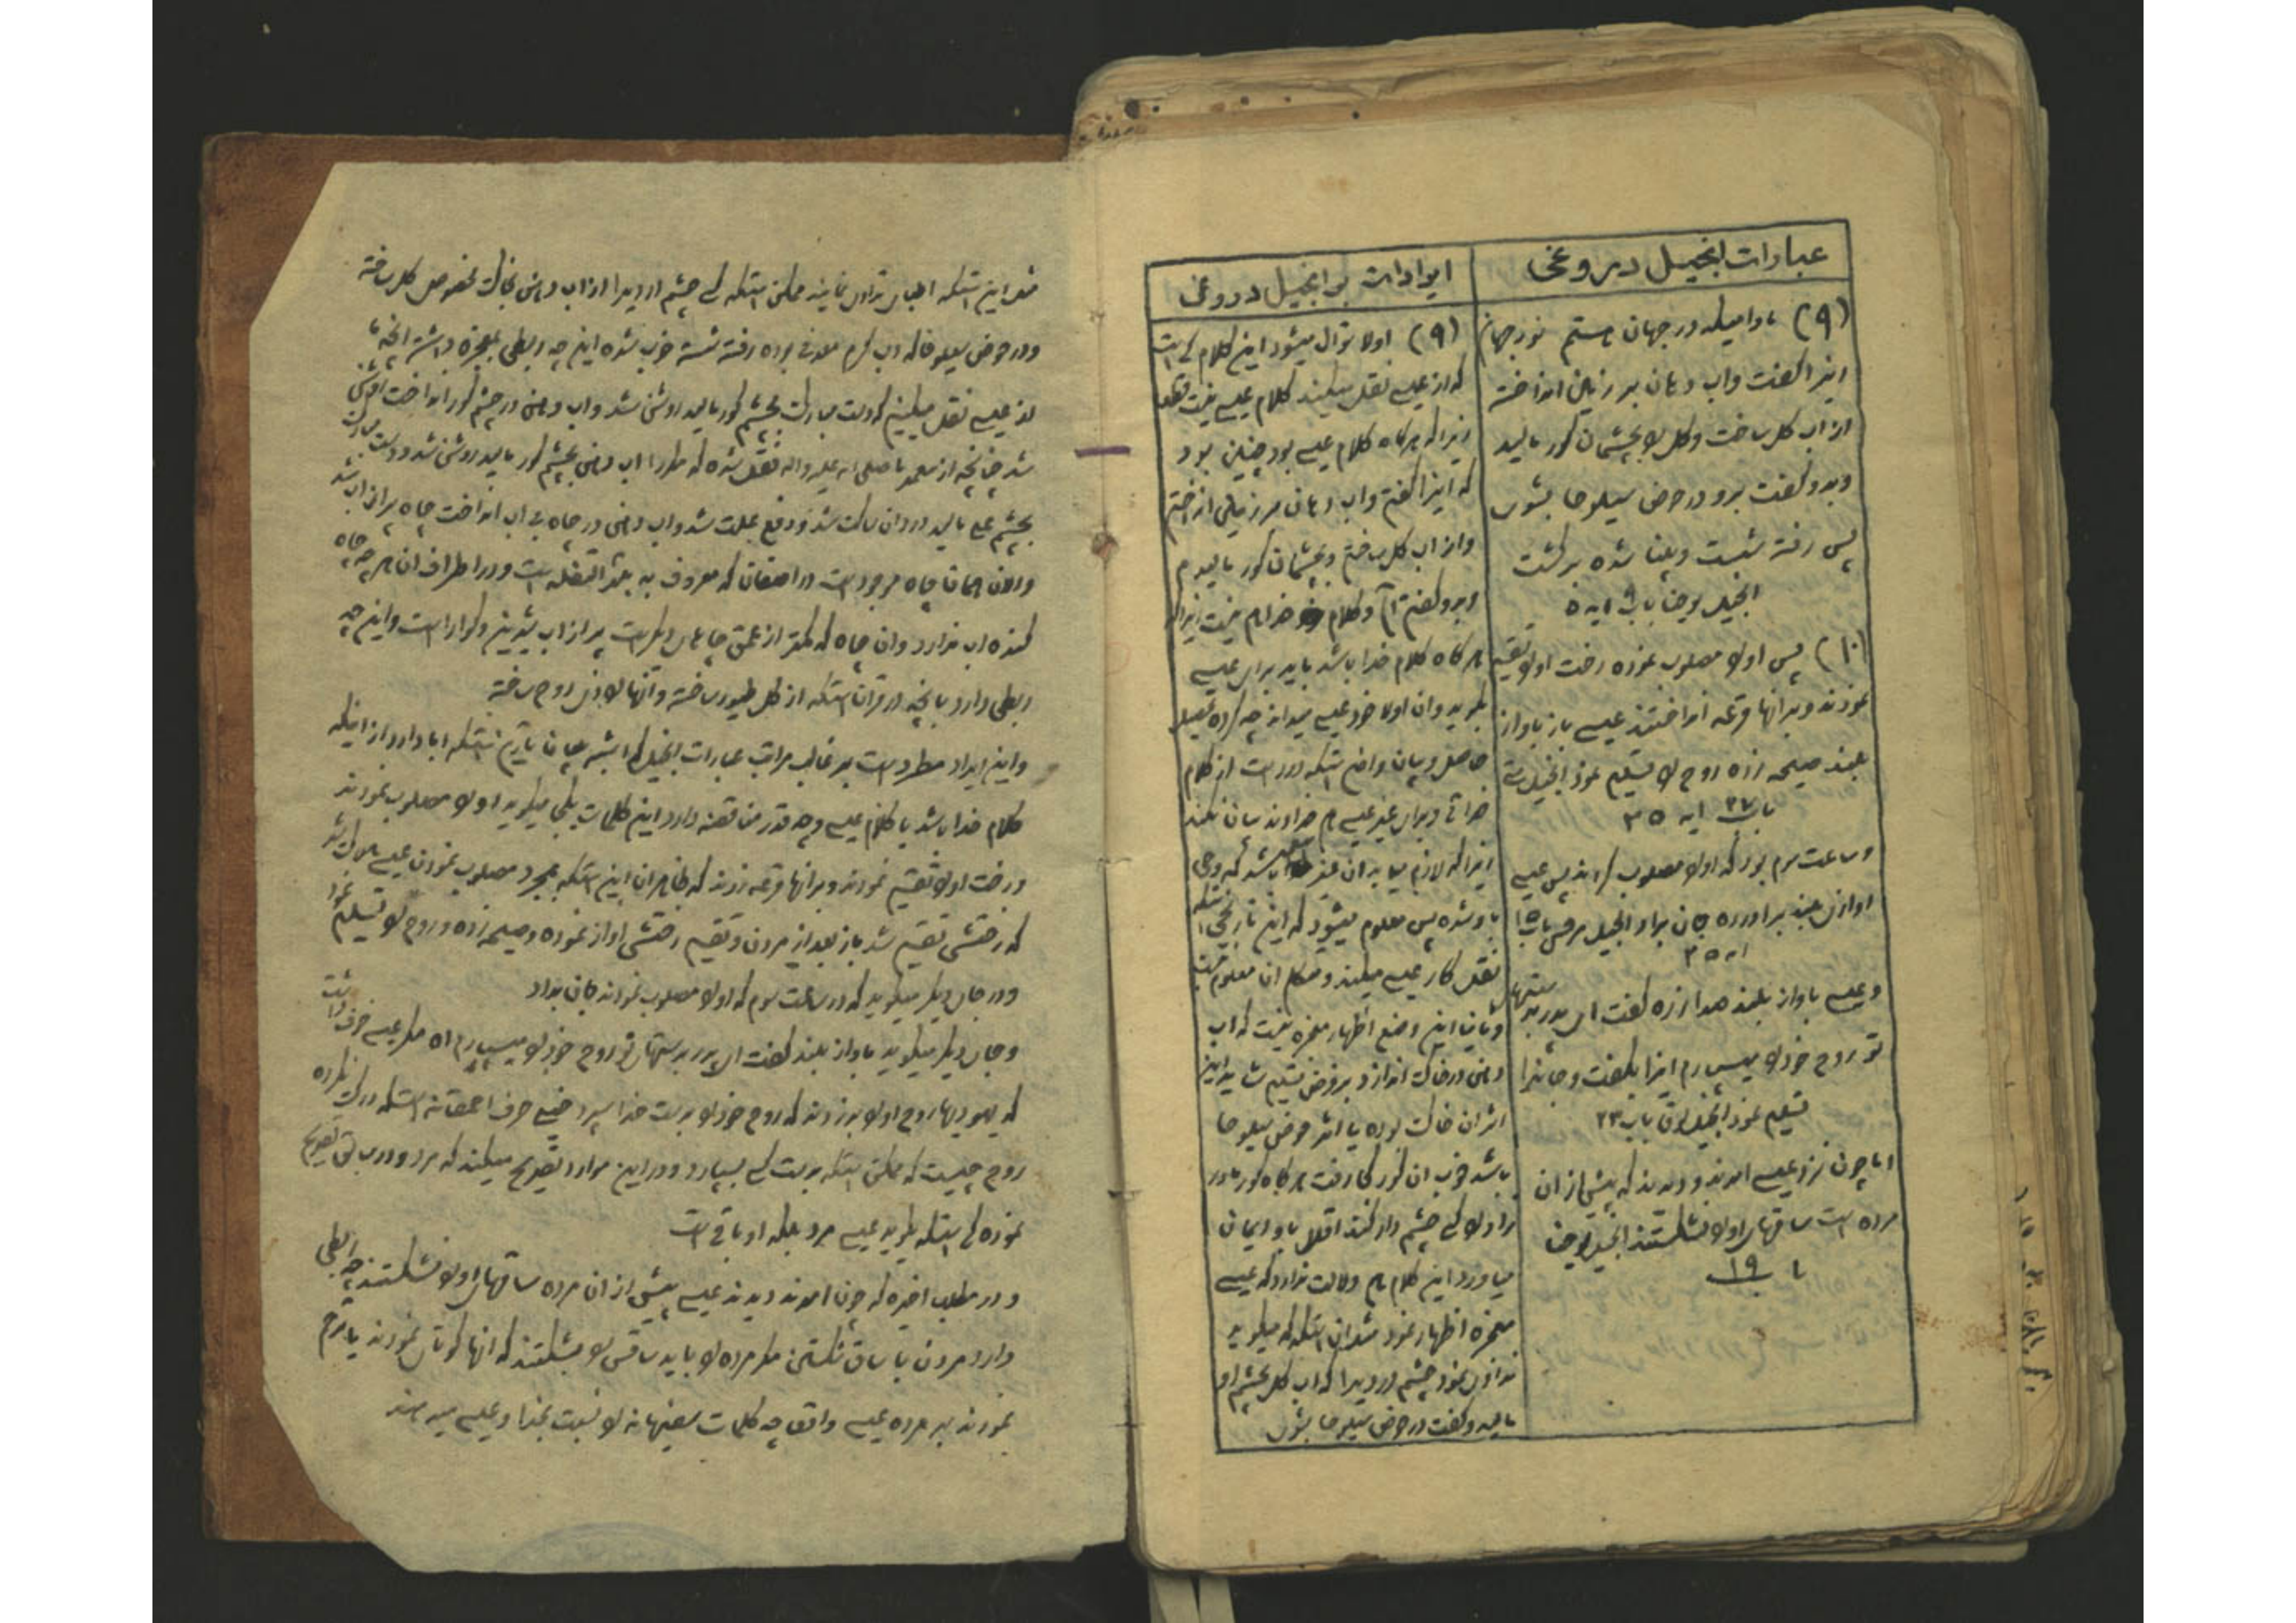 عبارات انجیل دروغی
(۹) مادامیکه در جهان هستم نور جهانم
اینرا گفت و اب دهان بر زمین انداخته
از اب گل ساخت و گل را بچشمان کور مالید
و بدو گفت برو در حوض سیلوحا بشوی
پس رفته شست و بینا شده برگشت
انجیل یوحنا باب ۹ ایه ۵
(۱۰) پس اورا مصلوب نموده رخت اورا تقسیم
نمودند و بر انها قرعه انداختند عیسی باز باواز
بلند صیحه زده روح را تسلیم نمود انجیل متی
باب ۲۷ ایه ۳۵
و ساعت سوم بود که اورا مصلوب کردند پس عیسی
اوازی بلند براورده جان بداد انجیل مرقس باب ۱۵
ایه ۲۵
و عیسی باواز بلند صدا زده گفت ای پدر بدستهای
تو روح خود را میسپارم اینرا بگفت و جانرا
تسلیم نمود انجیل لوقا باب ۲۳
اما چون نزد عیسی امدند و دیدند که پیش از ان
مرده است ساقهای اورا نشکستند انجیل یوحنا
باب ۱۹
ایرادات بر انجیل دروغی
(۹) اولا سؤال میشود این کلام کی است
که از عیسی نقل میکند کلام عیسی نیست قطعا
زیرا که هرگاه کلام عیسی بود چنین بود
که اینرا گفتم و اب دهان بر زمین انداختم
و از اب گل ساختم و بچشمان کور مالیدم
و بدو گفتم و کلام خدا هم نیست زیرا که
هرگاه کلام خدا باشد باید برای عیسی
بگوید و ان اولا خود عیسی میداند چه کرده تحصیل
حاصل و بیان واضح استکه دور است از کلام
خدائی و برای غیر عیسی هم خداوند بیان نکند
زیرا که لازم میاید ان غیر باشد که وحی
باو شده پس معلوم میشود که این تاریخی استکه
نقل کار عیسی میکند و متکلم ان معلوم نیست
و ثانیا این وضع اظهار معجزه نیست که اب
دهن در خاک اندازد و بر فرض تسلیم شاید این
اثر ان خاک بوده یا اثر حوض سیلوحا
باشد خوب ان کور کجا رفت هرگاه کور مادر
زاد را کسی چشم دار کند اقلا باو ایمان
میاورد این کلام هم دلالت ندارد که عیسی
معجزه اظهار نمود مثل ان استکه که میگوید
تداوی نمود چشم درد دیرا که اب گل بچشم او
مالید و گفت در حوض سیلوحا بشوی
مثل این استکه اطبای تداوی نمایند ممکن استکه کسی چشم او دیرا از اب دهن بخاک مخصوص گل ساخته
و در حوض سیلوحا که اب گرم معدنی بوده رفته شسته خوب شده این چه ربطی بمعجزه داشته انچه ما
از عیسی نقل میکنیم که دست مبارک بچشم کور مالید روشن شد و اب دهن در چشم کور انداخت
شد چنانچه از محمد ما صلی الله علیه و اله نقل شده که مکررا اب دهن بچشم کور مالید روشن شد و دست مبارک
بچشم علی مالید درد ان ساکت شد و دفع علت شد و اب دهن در چاه بی اب انداخت چاه پر از اب شد
و الان همان چاه موجود است در که معروف به است و در اطراف ان هر چه چاه
کنده اب ندارد و ان چاه که کمتر از عمق چاهای دیگر است پر از اب شیرین و گوارا است و این چه
ربطی دارد بانچه در قران استکه از گل طیور ساخته و انها را ذی روح ساخته
و این ایراد مطرد است بر غالب مراتب عبارات انجیل که اشبه بتاریخ استکه ابا دارد از اینکه
کلام خدا باشد یا کلام عیسی و چه قدر مناقضه دارد این کلمات یکجا میگوید اورا مصلوب نمودند
و رخت اورا تقسیم نمودند و بر انها قرعه زدند که ظاهر ان این استکه بمجرد مصلوب نمودن عیسی هلاک شد
که رختش تقسیم شد باز بعد از مردن و تقسیم رختش اواز نموده و صیحه زده و روح را تسلیم نمود
و در جای دیگر میگوید که در ساعت سوم که اورا مصلوب نمودند جان بداد
و جای دیگر میگوید باواز بلند گفت ای پدر بدستهای تو روح خود را میسپارم اه مگر عیسی خوف داشت
که یهودیها روح اورا بدزدند که روح خود را بدست خدا سپرد خیلی حرف احمقانه استکه درک نکرده
روح چیست که ممکن استکه بدست کسی بسپارد و در این موارد تصریح میکند که مرد و در سابق تصریح
نموده کی استکه بگوید عیسی مرد بلکه او باقی است
و در مطلب اخیره که چون امدند دیدند عیسی پیش از ان مرده ساقهای اورا نشکستند چه ربطی
دارد مردن با ساق شکستن مگر مرده را باید ساقش را بشکنند که انها کوتاهی نمودند یا ترحم
نمودند بر مرده عیسی واقعا چه کلمات سفیهانه را نسبت بخدا و عیسی میدهند